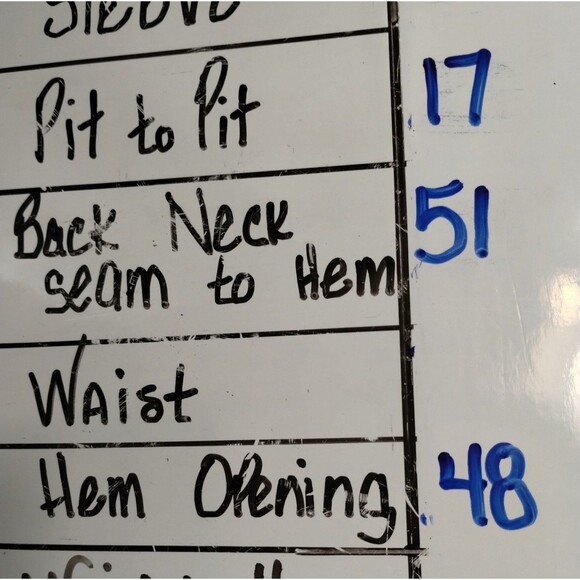 Sleeve
Pit to Pit 17
Back Neck 51
seam to Hem
Waist
Hem Opening 48